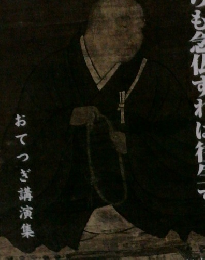 も念仏すれば往生
おてつぎ講演集